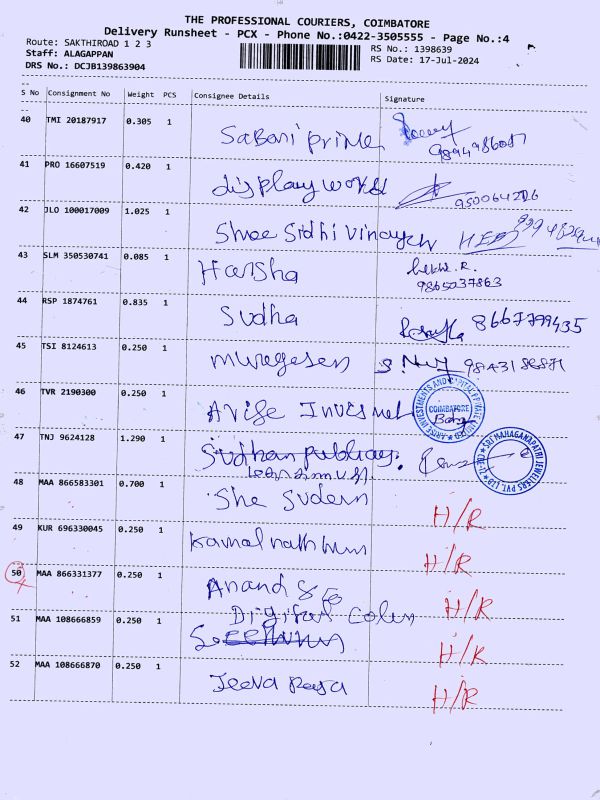 THE PROFESSIONAL COURIERS, COIMBATORE
Delivery Runsheet - PCX - Phone No.:0422-3505555 - Page No.:4
Route: SAKTHIROAD 1 2 3
RS No.: 1398639
Staff: ALAGAPPAN
RS Date: 17-Jul-2024
DRS No.: DCJB139863904
S No Consignment No Weight PCS Consignee Details Signature
40 TMI 20187917 0.305 1
Sabari prime
41 PRO 16607519 0.420 1
display world
42 JLO 100017009 1.025 1
Shree Sidhi Vinayagar
43 SLM 350530741 0.085 1
Harsha
9865037863
44 RSP 1874761 0.835 1
Sudha 8667799435
45 TSI 8124613 0.250 1
murugesen
46 TVR 2190300 0.250 1
COIMBATORE
47 TNJ 9624128 1.290 1
SRI MAHAGANAPATHI JEWELLERS PVT. LTD CBE-12
48 MAA 866583301 0.700 1
H/R
49 KUR 696330045 0.250 1
Kamal nath
H/R
50 MAA 866331377 0.250 1
Anand & Co
H/R
51 MAA 108666859 0.250 1
Digital
H/R
52 MAA 108666870 0.250 1
Jeeva
H/R